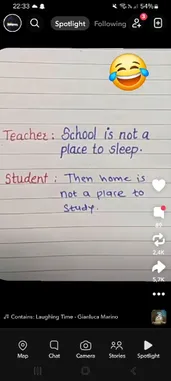 22:33
54%
Spotlight Following
3
Teacher: School is not a
place to sleep.
Student: Then home is
not a place to
study.
2,4K
5,7K
Contains: Laughing Time - Gianluca Marino
Map Chat Camera Stories Spotlight